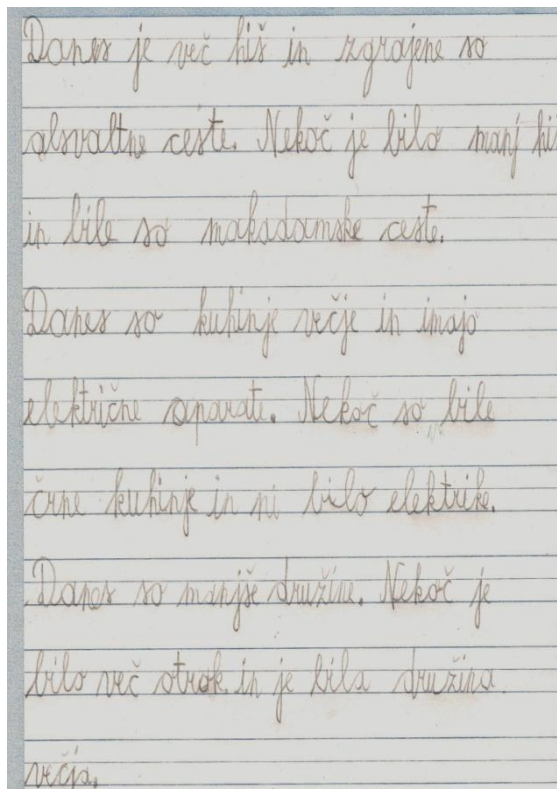 Danes je več hiš in zgrajene so
alsvaltne ceste. Nekoč je bilo manj hiš
in bile so makadamske ceste.
Danes so kuhinje večje in imajo
električne aparate. Nekoč so bile
črne kuhinje in ni bilo elektrike.
Danes so manjše družine. Nekoč je
bilo več otrok in je bila družina
večja.